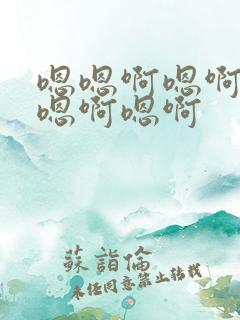 嗯嗯啊嗯啊
嗯啊嗯啊
蘇詣倫
未任同意禁止转载